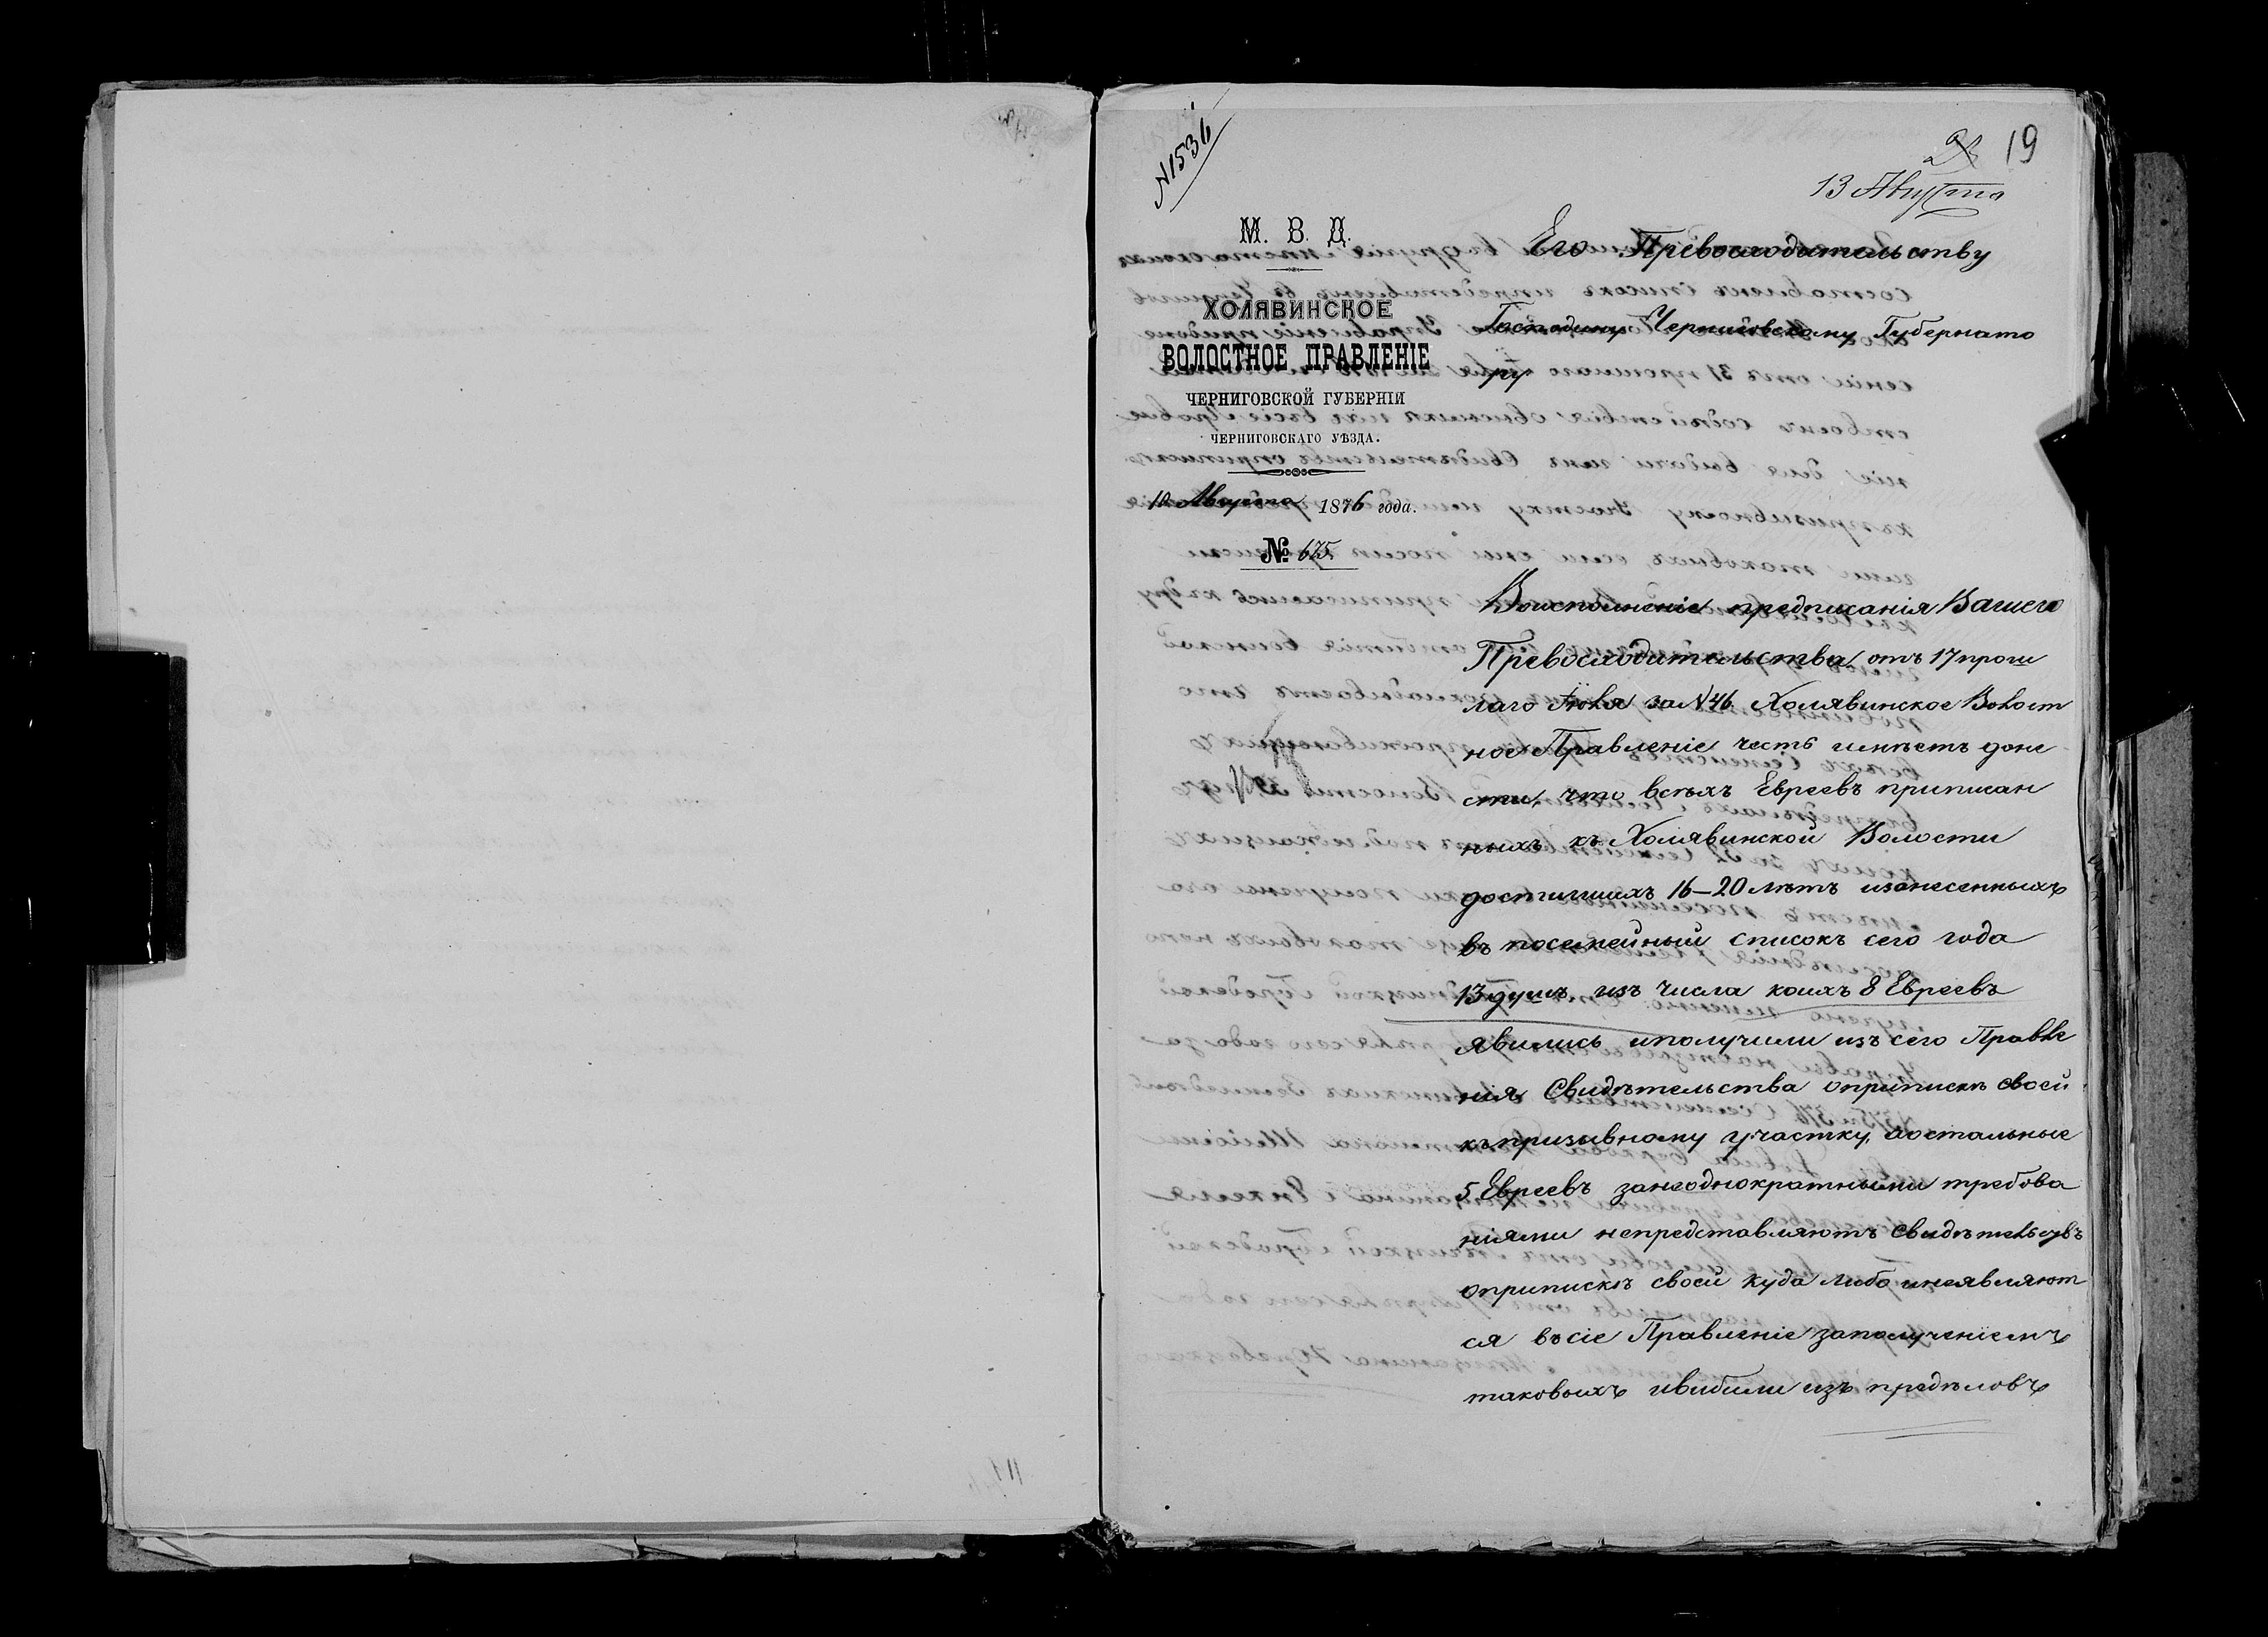 №1536
19
13 Августа
М. В. Д.
ХОЛЯВИНСКОЕ
ВОЛОСТНОЕ ПРАВЛЕНІЕ
ЧЕРНИГОВСКОЙ ГУБЕРНІИ
ЧЕРНИГОВСКАГО УѢЗДА.
10 Августа 1876 года.
№ 675.
Его Превосходительству
Господину Черниговскому Губернато
ру
Воисполненіе предписанія Вашего
Превосходительства отъ 17 прош
лаго Іюля за №46 Холявинское Волост
ное Правленіе честь имѣетъ доне
сти, что всѣхъ Евреевъ приписан
ныхъ къ Холявинской Волости
достигшихъ 16–20 лѣтъ изанесенныхъ
въ посемейный списокъ сего года
13 душъ изъ числа коихъ 8 Евреевъ
явились иполучили изъ сего Правле
нія Свидѣтельства оприпискѣ своей
къпризывному участку, аостальные
5 Евреевъ занеоднократными требова
ніями непредставляютъ свидѣтельствъ
оприпискѣ своей куда либо инеявляют
ся въсіе Правленіе заполученіемъ
таковыхъ ивибили изъ предѣловъ